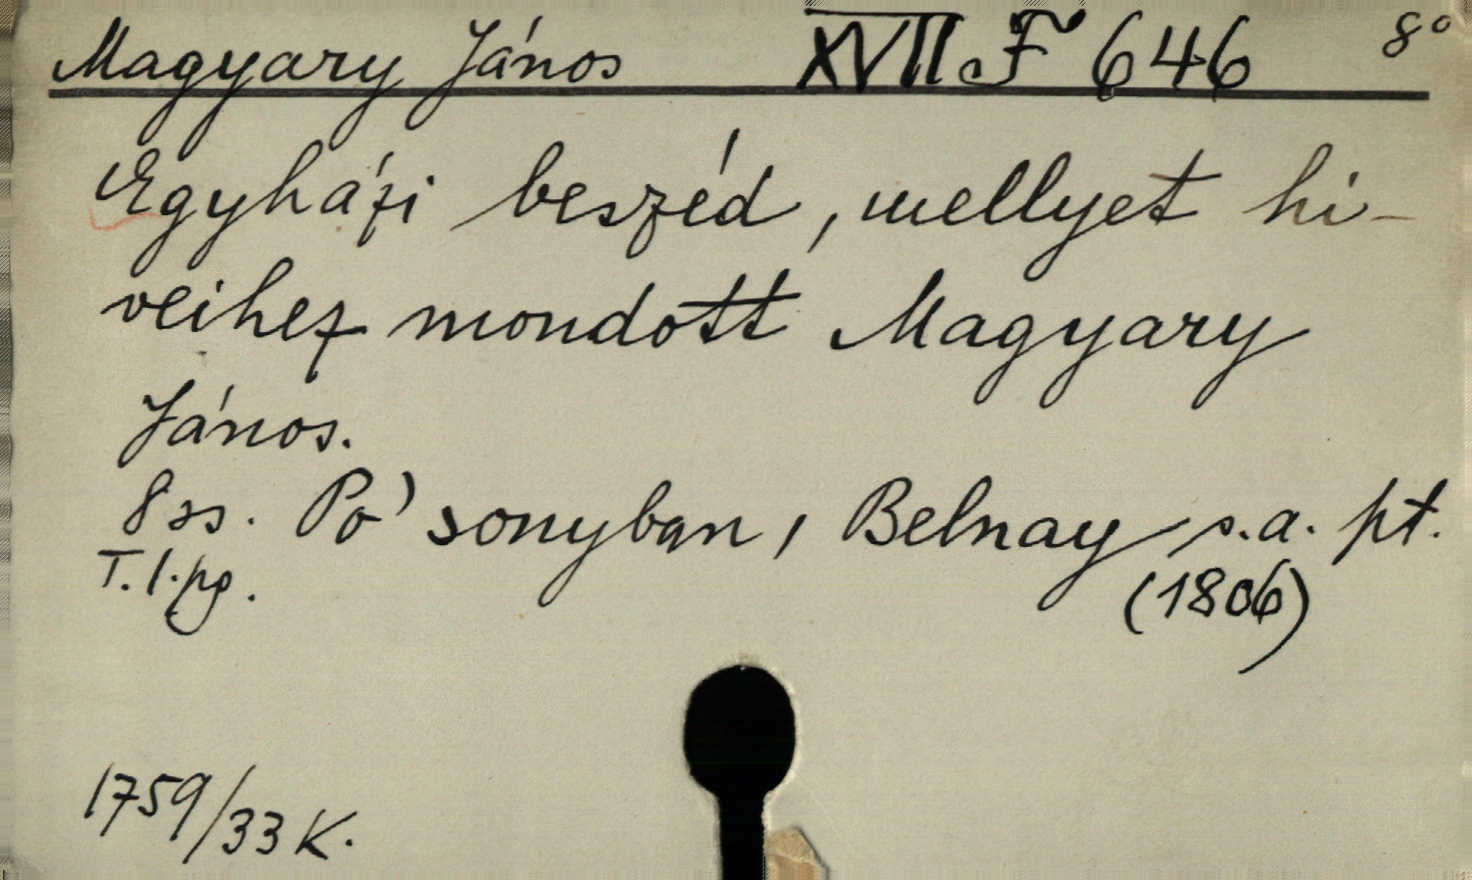 Magyary János XVII F 646 8°
Egyházi beszéd, mellyet hi-
veihez mondott Magyary
János.
8 ss. Po'sonyban, Belnay s.a. pt.
T. l. pg. (1806)
1759/33 K.